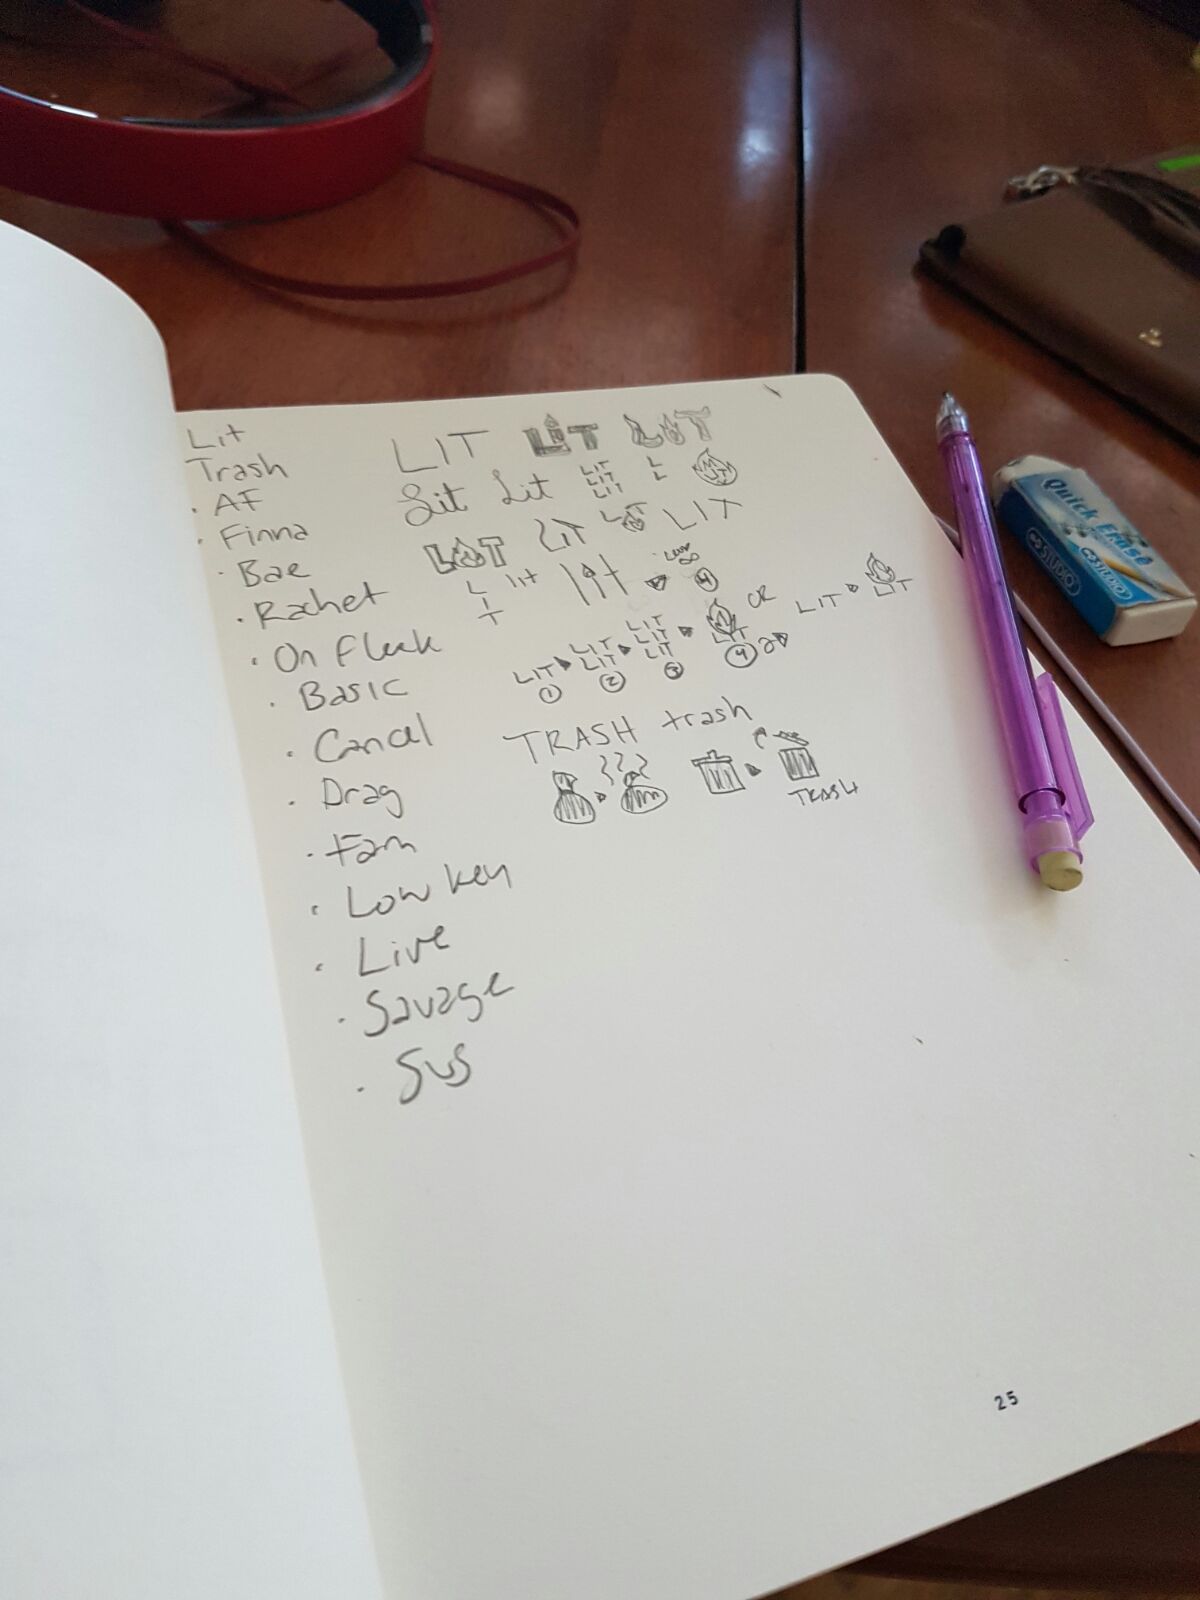 Lit
Trash
· AF
· Finna
· Bae
· Rachet
· On Fleek
· Basic
· Cancel
· Drag
· Fam
· Low key
· Live
· Savage
· Sus
LIT LIT LIT
Lit Lit LIT
LIT
LIT
L
L
LIT LIT LIT LIT
L
I
T
lit lit
4
LIT
1
LIT
LIT
2
LIT
LIT
LIT
3
LIT
4
OR
LIT
LIT
TRASH trash
TRASH
Quick Erase
STUDIO
STUDIO
25